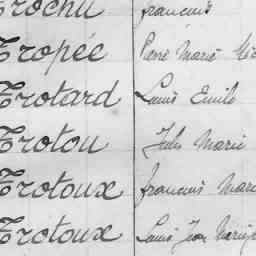 Trochu françois
Tropée Pierre Marie
Trotard Louis Emile
Trotou Jules Marie
Trotoux françois Marie
Trotoux Louis Jean Marie